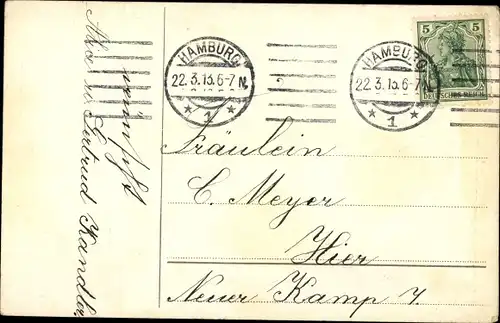 HAMBURG
22.3.13.6-7N.
* 1 *
HAMBURG
22.3.13.6-7N.
* 1 *
5 5
DEUTSCHES REICH
Fräulein
C. Meyer
Hier
Neuer Kamp 7.
Gertrud Kandler